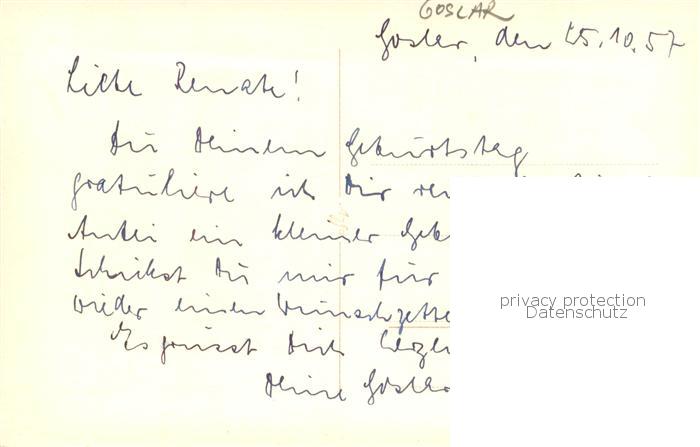 GOSLAR
Goslar, den 25.10.57
Liebe Renate!
Zu Deinem Geburtstag
gratuliere ich Dir
Anbei ein kleiner Geb
Schickst Du mir für
wieder einen Wunschzette
Es grüsst Dich herzl
Deine Goslar
privacy protection
Datenschutz